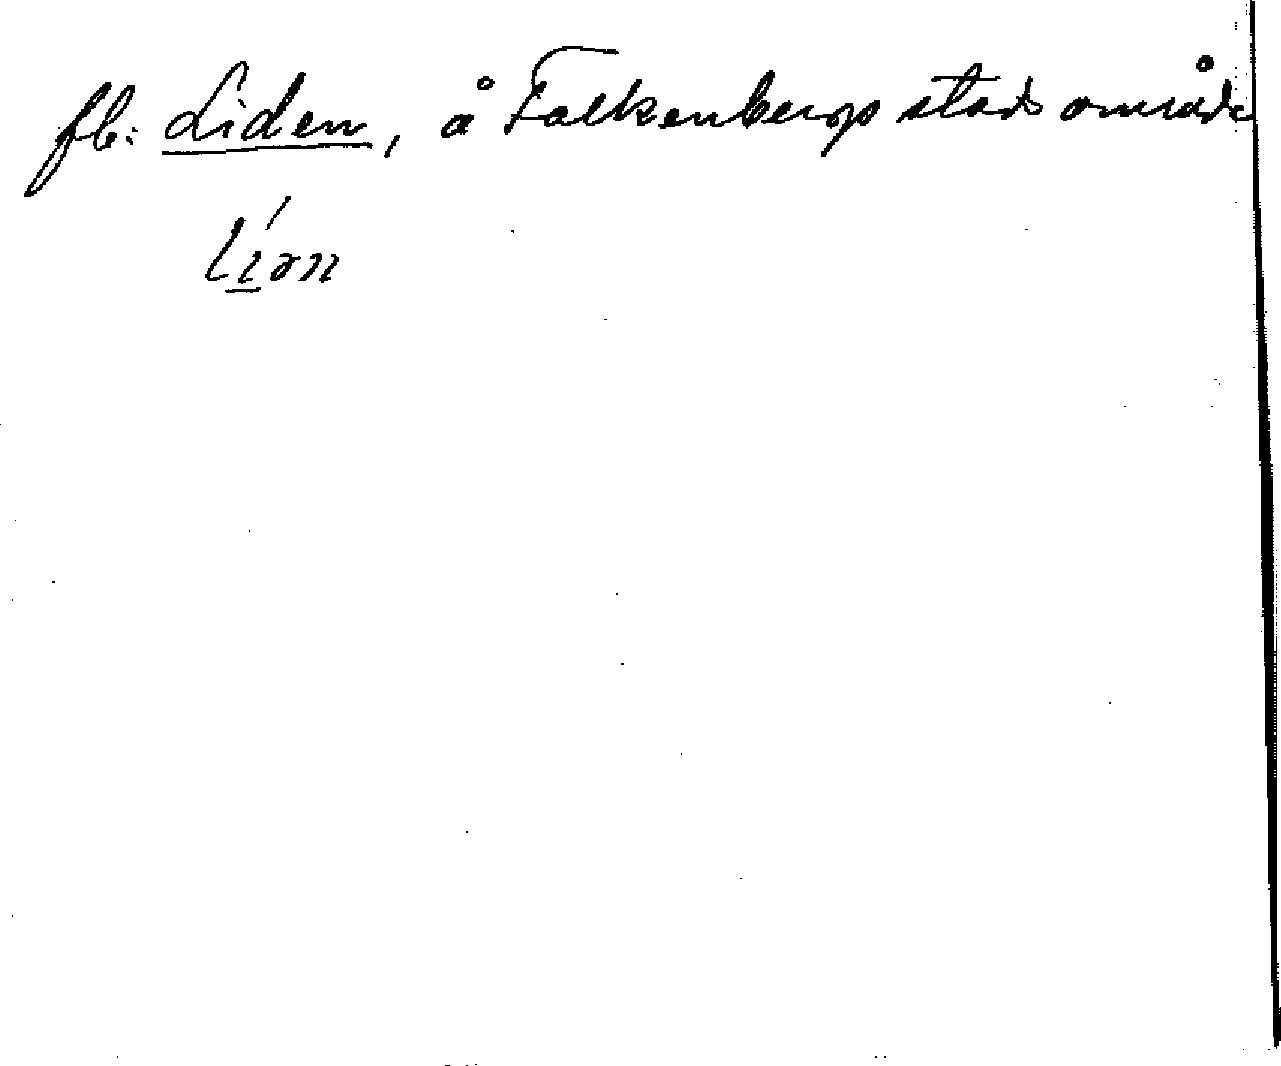 fb: Liden, å Falkenbergs stads område